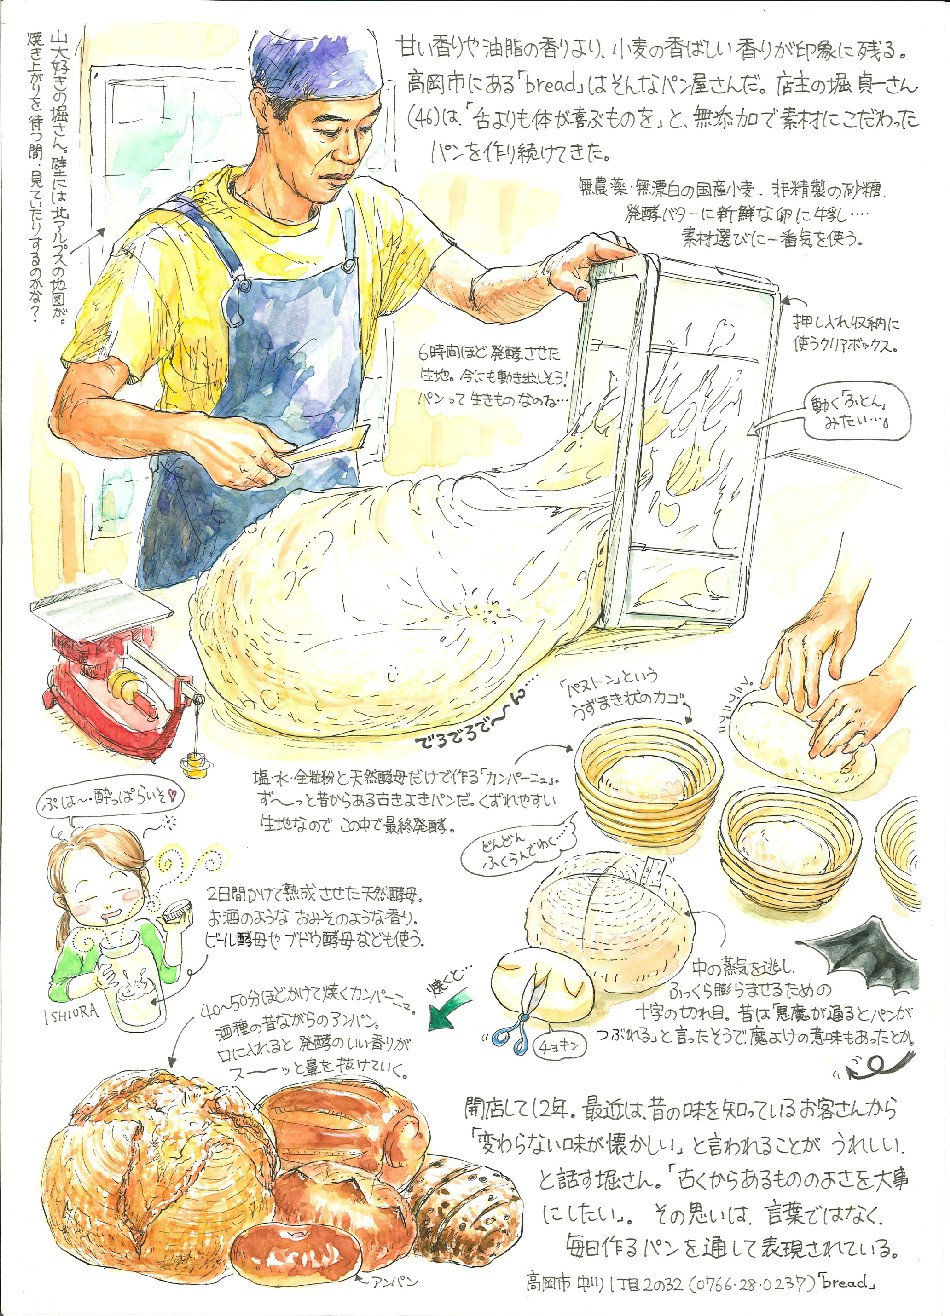 甘い香りや油脂の香りより、小麦の香ばしい香りが印象に残る。
高岡市にある「bread」はそんなパン屋さんだ。店主の堀 貞一さん
(46)は、「舌よりも体が喜ぶものを」と、無添加で素材にこだわった
パンを作り続けてきた。
無農薬・無漂白の国産小麦、非精製の砂糖、
発酵バターに新鮮な卵に牛乳……
素材選びに一番気を使う。
山大好きの堀さん。壁には北アルプスの地図が。
焼き上がりを待つ間、見ていたりするのかな？
押し入れ収納に
使うクリアボックス。
6時間ほど発酵させた
生地。今にも動き出しそう!
パンって生きものなのね…
動く「ふとん」
みたい…。
でろでろで〜ん…
「パストン」という
うずまき状のカゴ
塩・水・全粒粉と天然酵母だけで作る「カンパーニュ」。
ず〜っと昔からある古きよきパンだ。くずれやすい
生地なので この中で最終発酵。
どんどん
ふくらんでゆく…
ぷは〜・酔っぱらいそ♡
2日間かけて熟成させた天然酵母。
お酒のような おみそのような香り。
ビール酵母や ブドウ酵母なども使う。
ISHIURA
中の蒸気を逃し、
ふっくら膨らませるための
十字の切れ目。昔は「悪魔が通るとパンが
つぶれる」と言ったそうで魔よけの意味もあったとか。
チョキン
焼くと…
40〜50分ほどかけて焼くカンパーニュ。
酒種の昔ながらのアンパン。
口に入れると 発酵のいい香りが
スーーッと鼻を抜けていく。
アンパン
開店して12年。最近は、昔の味を知っているお客さんから
「変わらない味が懐かしい」と言われることが うれしい、
と話す堀さん。「古くからあるもののよさを大事
にしたい」。 その思いは、言葉ではなく、
毎日作るパンを通して表現されている。
高岡市 中川1丁目2の32 (0766・28・0237)「bread」